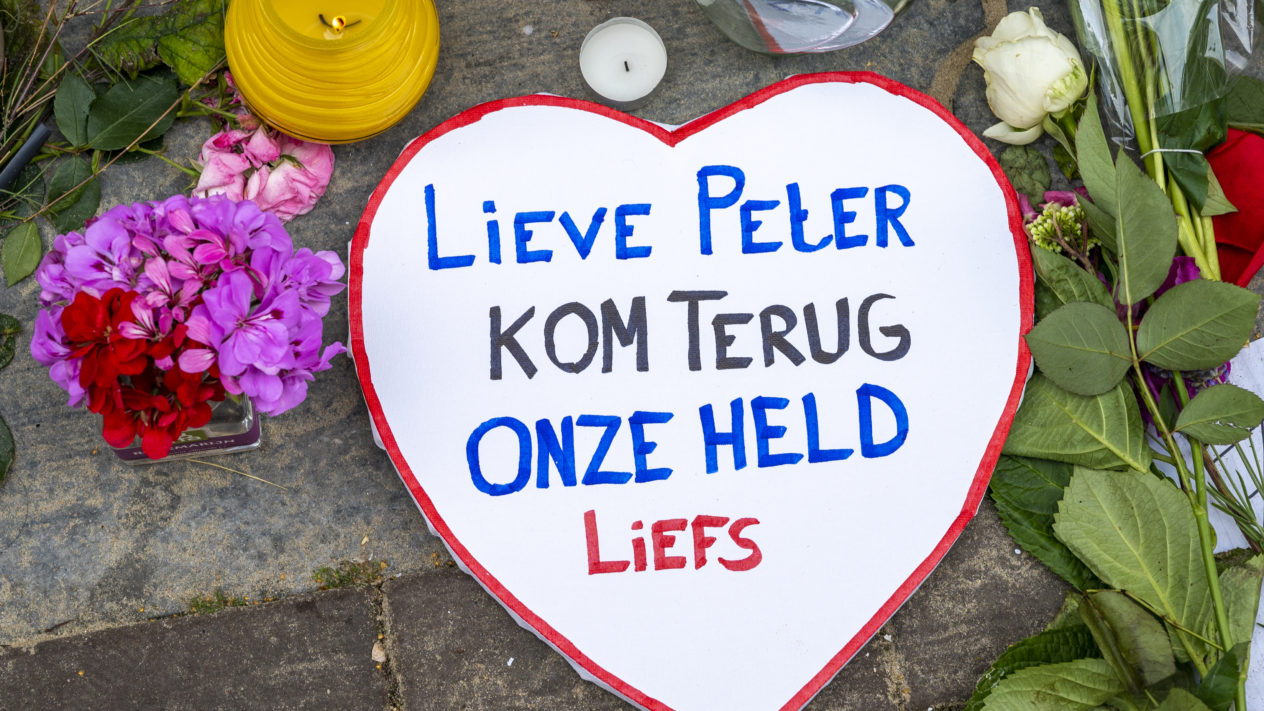 Lieve Peter
KOM TERUG
ONZE HELD
Liefs